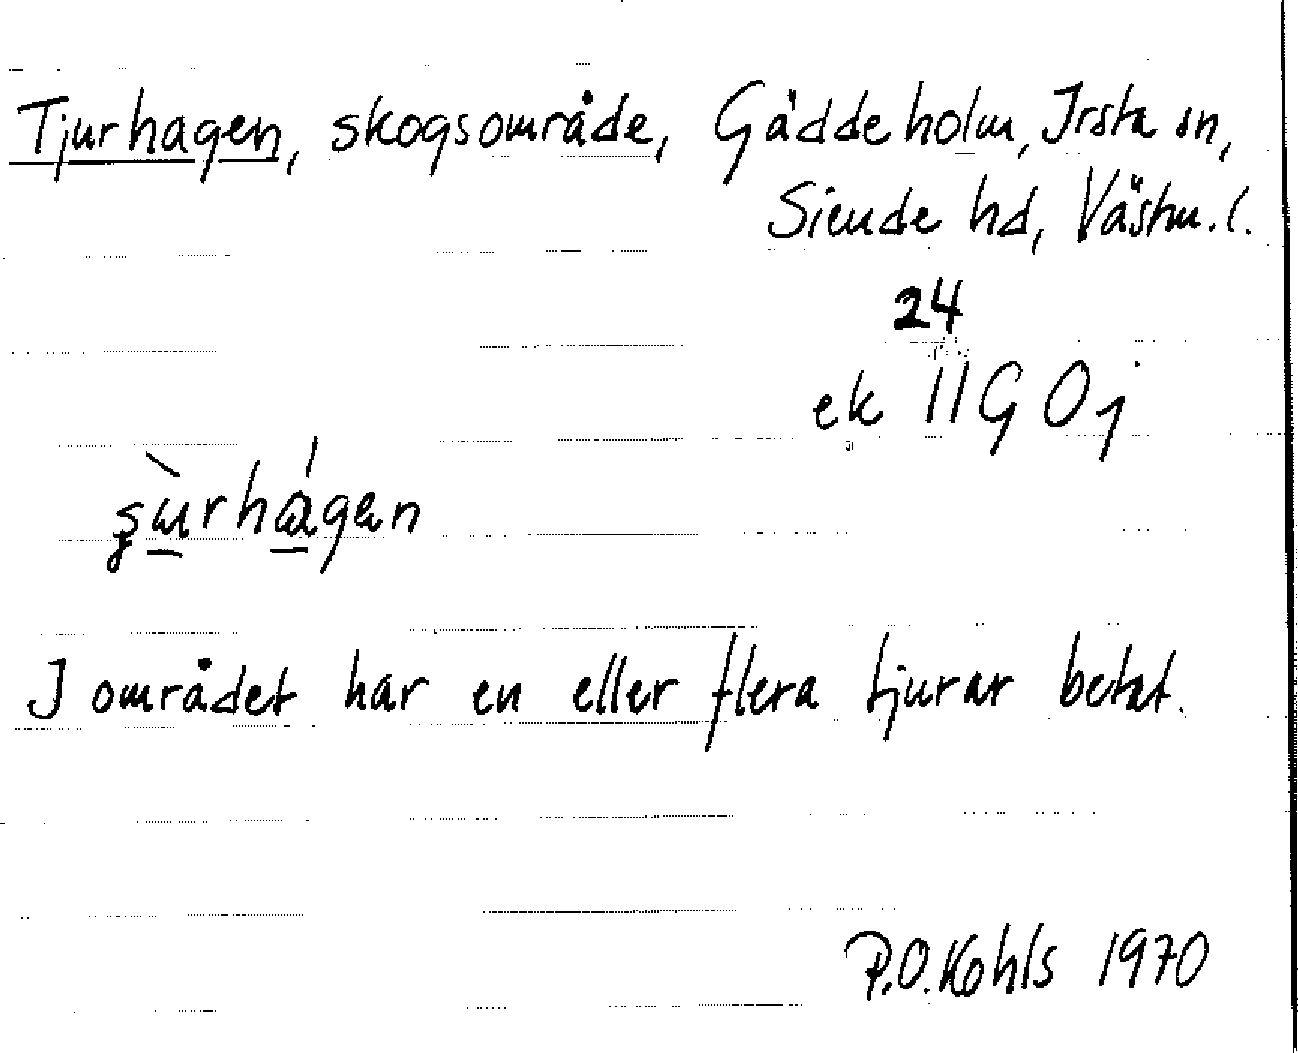 Tjurhagen, skogsområde, Gäddeholm, Irsta sn,
Siende hd, Västm. l.
24
ek 11G 0j
I området har en eller flera tjurar betat.
P.O. Kohls 1970